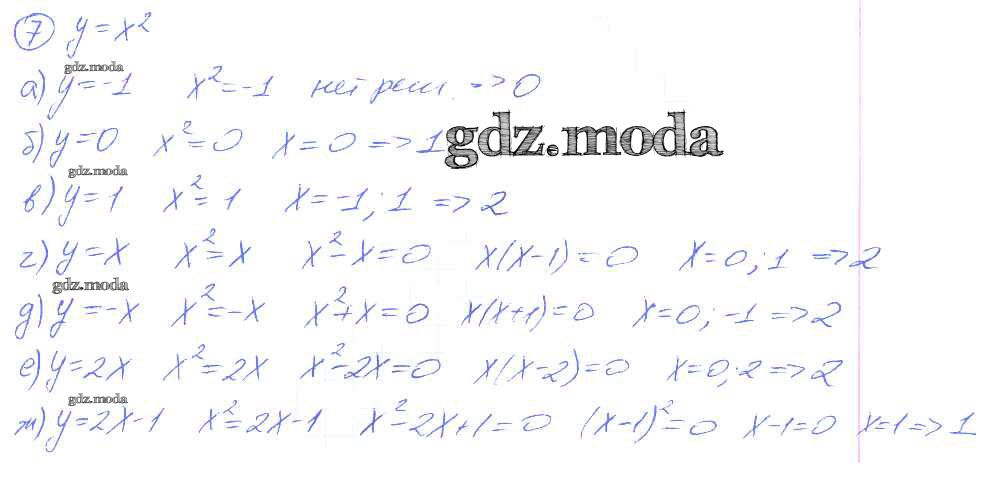 7 y = x²
gdz.moda
а) y = -1 x² = -1 нет реш. => 0
б) y = 0 x² = 0 x = 0 => 1
gdz.moda
gdz.moda
в) y = 1 x² = 1 x = -1; 1 => 2
г) y = x x² = x x² - x = 0 x(x-1) = 0 x = 0; 1 => 2
gdz.moda
д) y = -x x² = -x x² + x = 0 x(x+1) = 0 x = 0; -1 => 2
е) y = 2x x² = 2x x² - 2x = 0 x(x-2) = 0 x = 0; 2 => 2
gdz.moda
ж) y = 2x-1 x² = 2x-1 x² - 2x + 1 = 0 (x-1)² = 0 x-1 = 0 x = 1 => 1